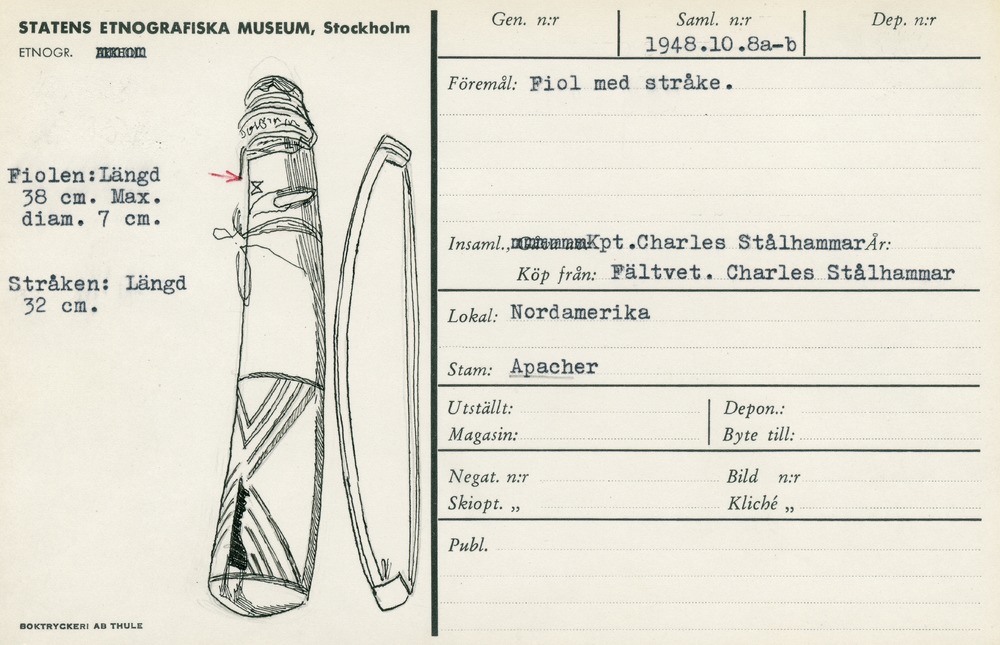 STATENS ETNOGRAFISKA MUSEUM, Stockholm
ETNOGR.
Fiolen: Längd
38 cm. Max.
diam. 7 cm.
Stråken: Längd
32 cm.
BOKTRYCKERI AB THULE
Gen. n:r
Saml. n:r
Dep. n:r
1948.10.8a-b
Föremål: Fiol med stråke.
Insaml., Kpt.Charles Stålhammar År:
Köp från: Fältvet. Charles Stålhammar
Lokal: Nordamerika
Stam: Apacher
Utställt:
Depon.:
Magasin:
Byte till:
Negat. n:r
Bild n:r
Skiopt. „
Kliché „
Publ.